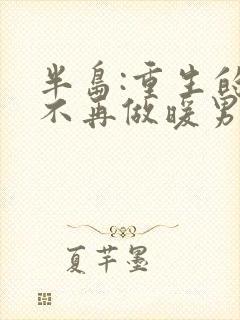 半岛:重生的
不再做暖男
夏芊墨